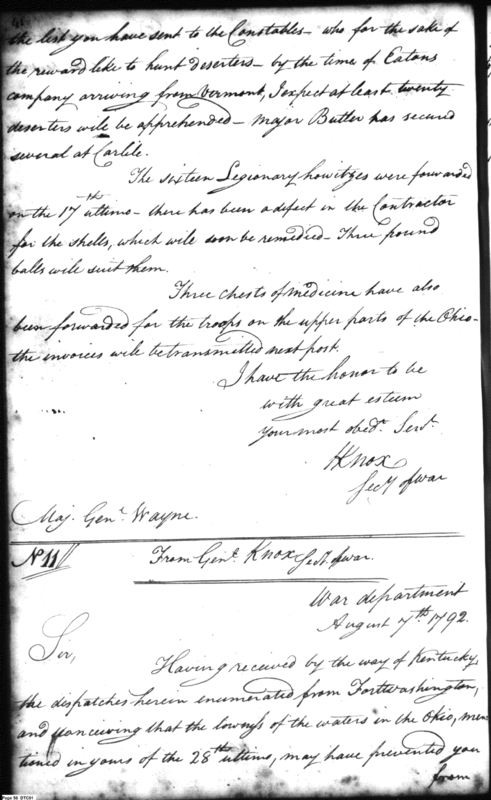 the list you have sent to the Constables – who for the sake of
the reward like to hunt deserters – by the time of Eatons
company arriving from Vermont, I expect at least twenty
deserters will be apprehended – Major Butler has secured
several at Carlile.
The sixteen Legionary howitzes were forwarded
on the 17th ultimo – there has been a defect in the Contractor
for the shells, which will soon be remedied – Three pound
balls will suit them.
Three chests of medicine have also
been forwarded for the troops on the upper parts of the Ohio –
the invoices will be transmitted next post.
I have the honor to be
with great esteem
Your most obedt. Servt.
HKnox
Secy of war
Maj. Genl. Wayne.
No 11
From Genl. Knox Secy. of war.
War department
August 7th 1792.
Sir,
Having received by the way of Kentucky,
the dispatches herein enumerated from Fort Washington,
and conceiving that the lowness of the waters in the Ohio, men-
tioned in yours of the 28th ultimo, may have prevented you
from
Page 56 DTC01